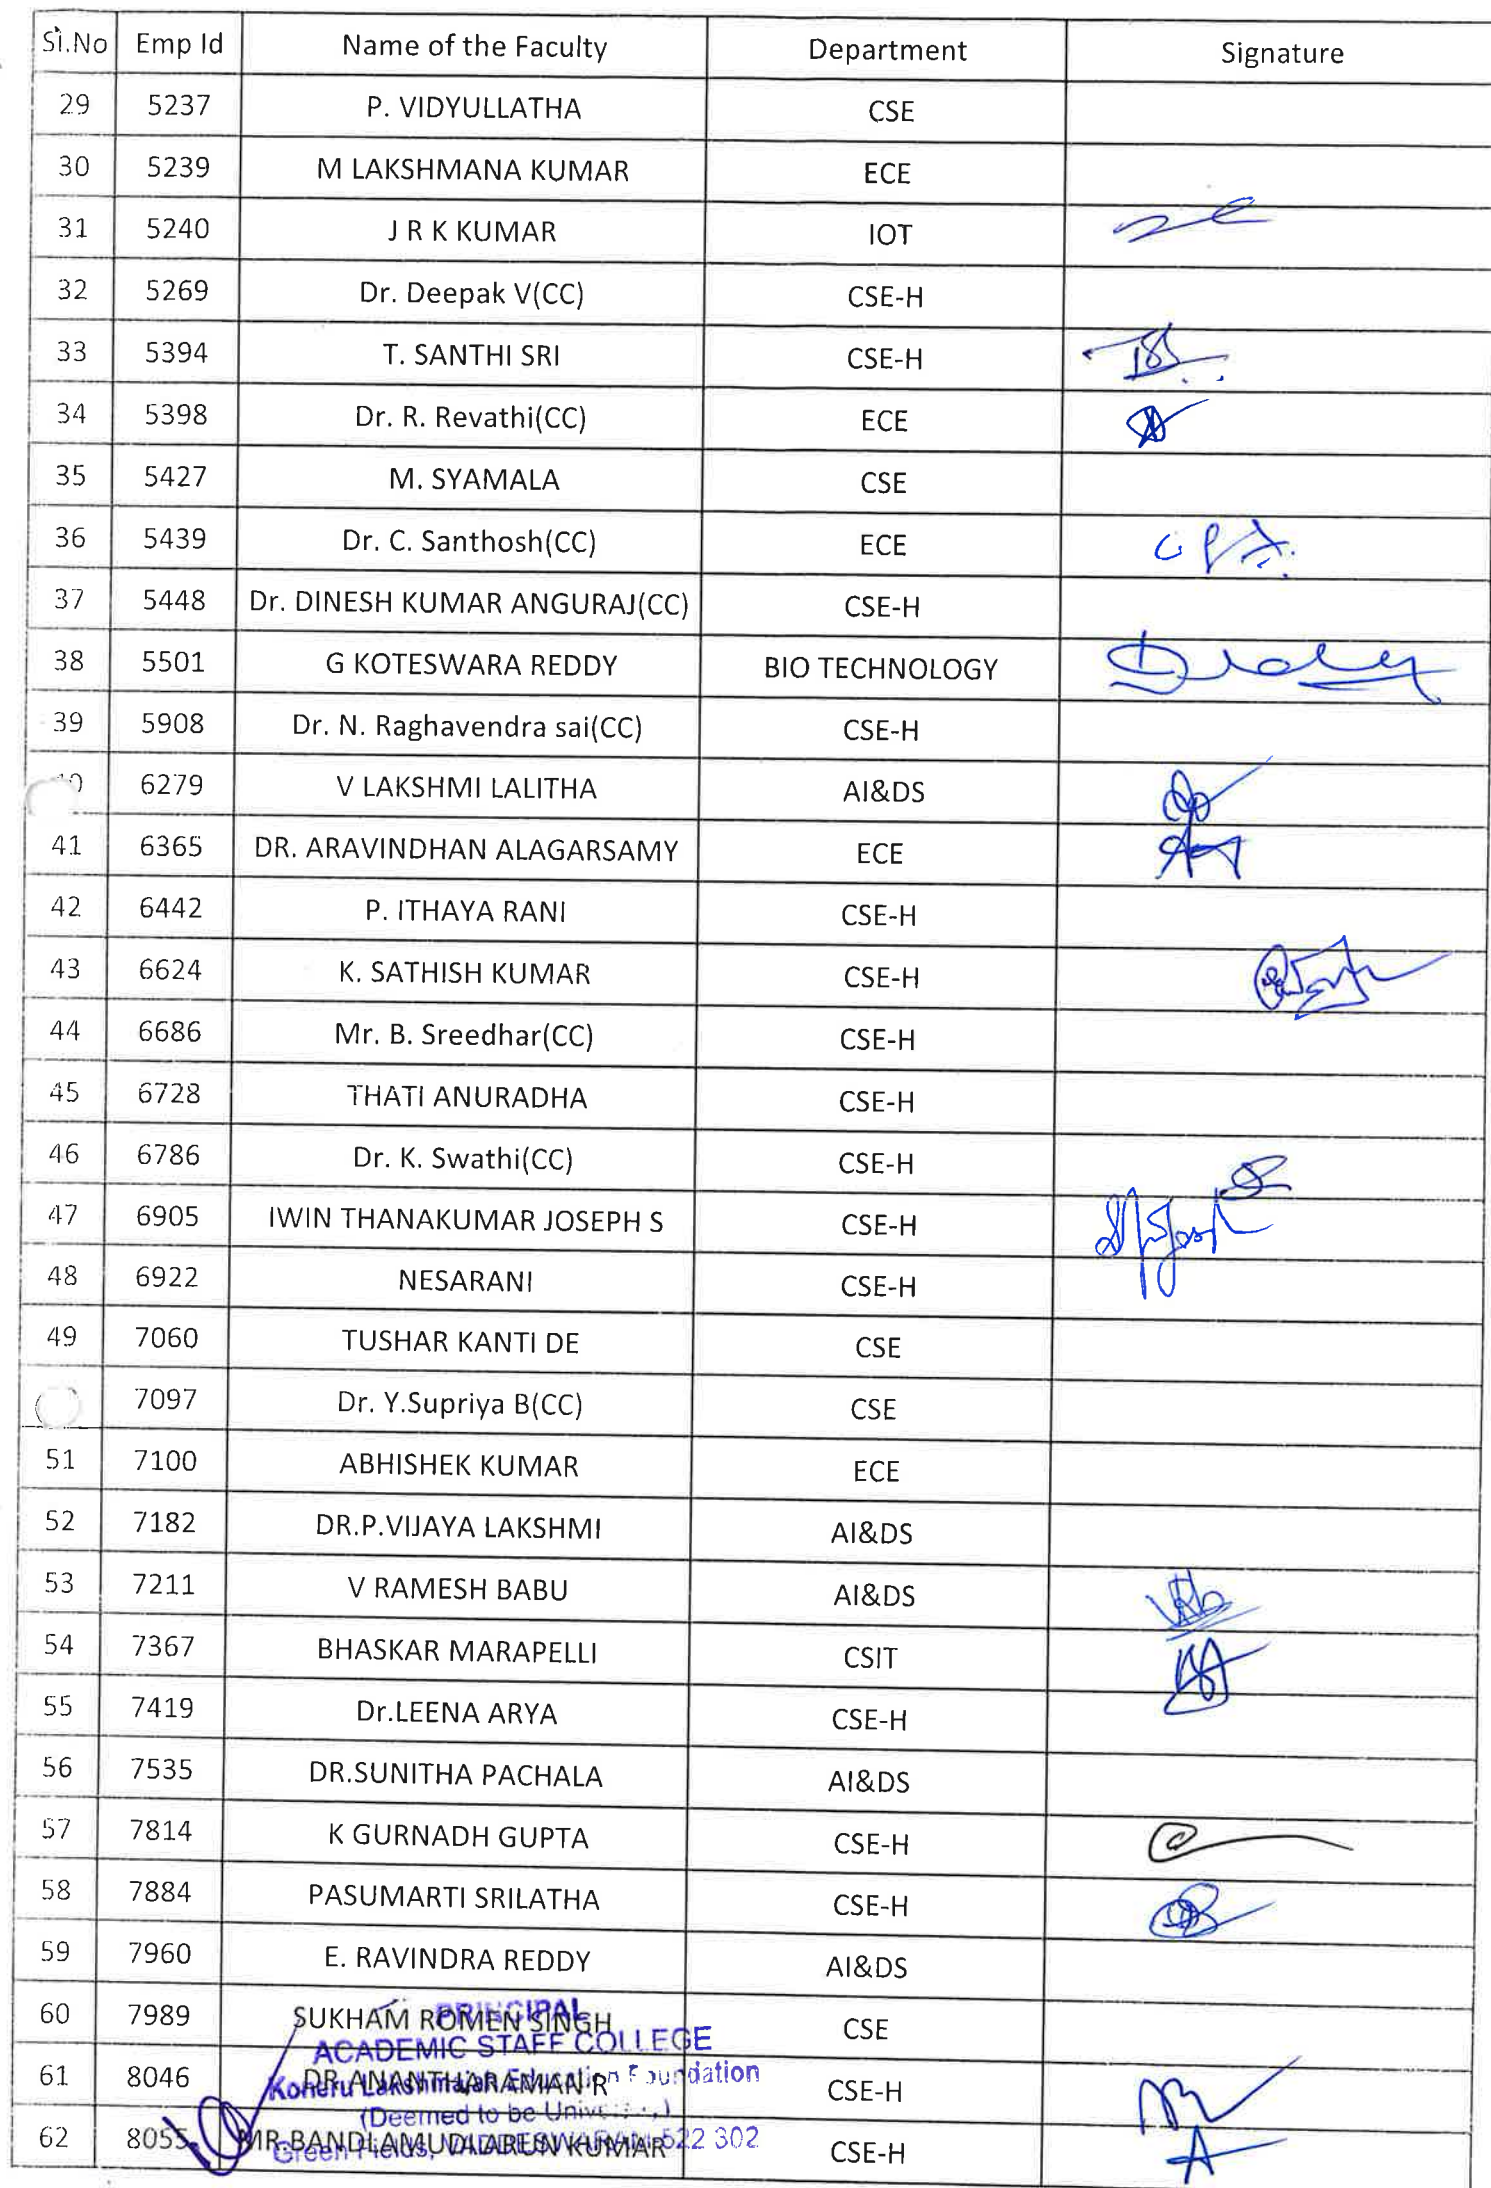 Sl.No Emp Id Name of the Faculty Department Signature
29 5237 P. VIDYULLATHA CSE
30 5239 M LAKSHMANA KUMAR ECE
31 5240 J R K KUMAR IOT
32 5269 Dr. Deepak V(CC) CSE-H
33 5394 T. SANTHI SRI CSE-H
34 5398 Dr. R. Revathi(CC) ECE
35 5427 M. SYAMALA CSE
36 5439 Dr. C. Santhosh(CC) ECE
37 5448 Dr. DINESH KUMAR ANGURAJ(CC) CSE-H
38 5501 G KOTESWARA REDDY BIO TECHNOLOGY
39 5908 Dr. N. Raghavendra sai(CC) CSE-H
6279 V LAKSHMI LALITHA AI&DS
41 6365 DR. ARAVINDHAN ALAGARSAMY ECE
42 6442 P. ITHAYA RANI CSE-H
43 6624 K. SATHISH KUMAR CSE-H
44 6686 Mr. B. Sreedhar(CC) CSE-H
45 6728 THATI ANURADHA CSE-H
46 6786 Dr. K. Swathi(CC) CSE-H
47 6905 IWIN THANAKUMAR JOSEPH S CSE-H
48 6922 NESARANI CSE-H
49 7060 TUSHAR KANTI DE CSE
7097 Dr. Y.Supriya B(CC) CSE
51 7100 ABHISHEK KUMAR ECE
52 7182 DR.P.VIJAYA LAKSHMI AI&DS
53 7211 V RAMESH BABU AI&DS
54 7367 BHASKAR MARAPELLI CSIT
55 7419 Dr.LEENA ARYA CSE-H
56 7535 DR.SUNITHA PACHALA AI&DS
57 7814 K GURNADH GUPTA CSE-H
58 7884 PASUMARTI SRILATHA CSE-H
59 7960 E. RAVINDRA REDDY AI&DS
60 7989 SUKHAM ROMEN SINGH CSE
PRINCIPAL
ACADEMIC STAFF COLLEGE
61 8046 DR.ANANTHARAMAN R CSE-H
Koneru Lakshmaiah Education Foundation
(Deemed to be
62 8055 MR.BANDLAMUDI ARUN KUMAR CSE-H
Green Fields, 522 302